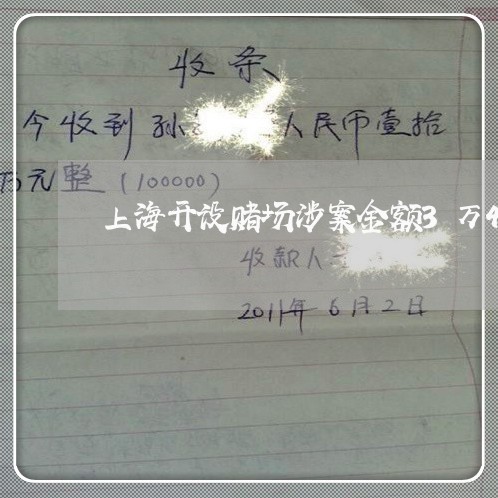 收条
今收到孙 人民币壹拾
万元整（100000）
上海开设赌场涉案金额3万4
收款人
2011年6月2日